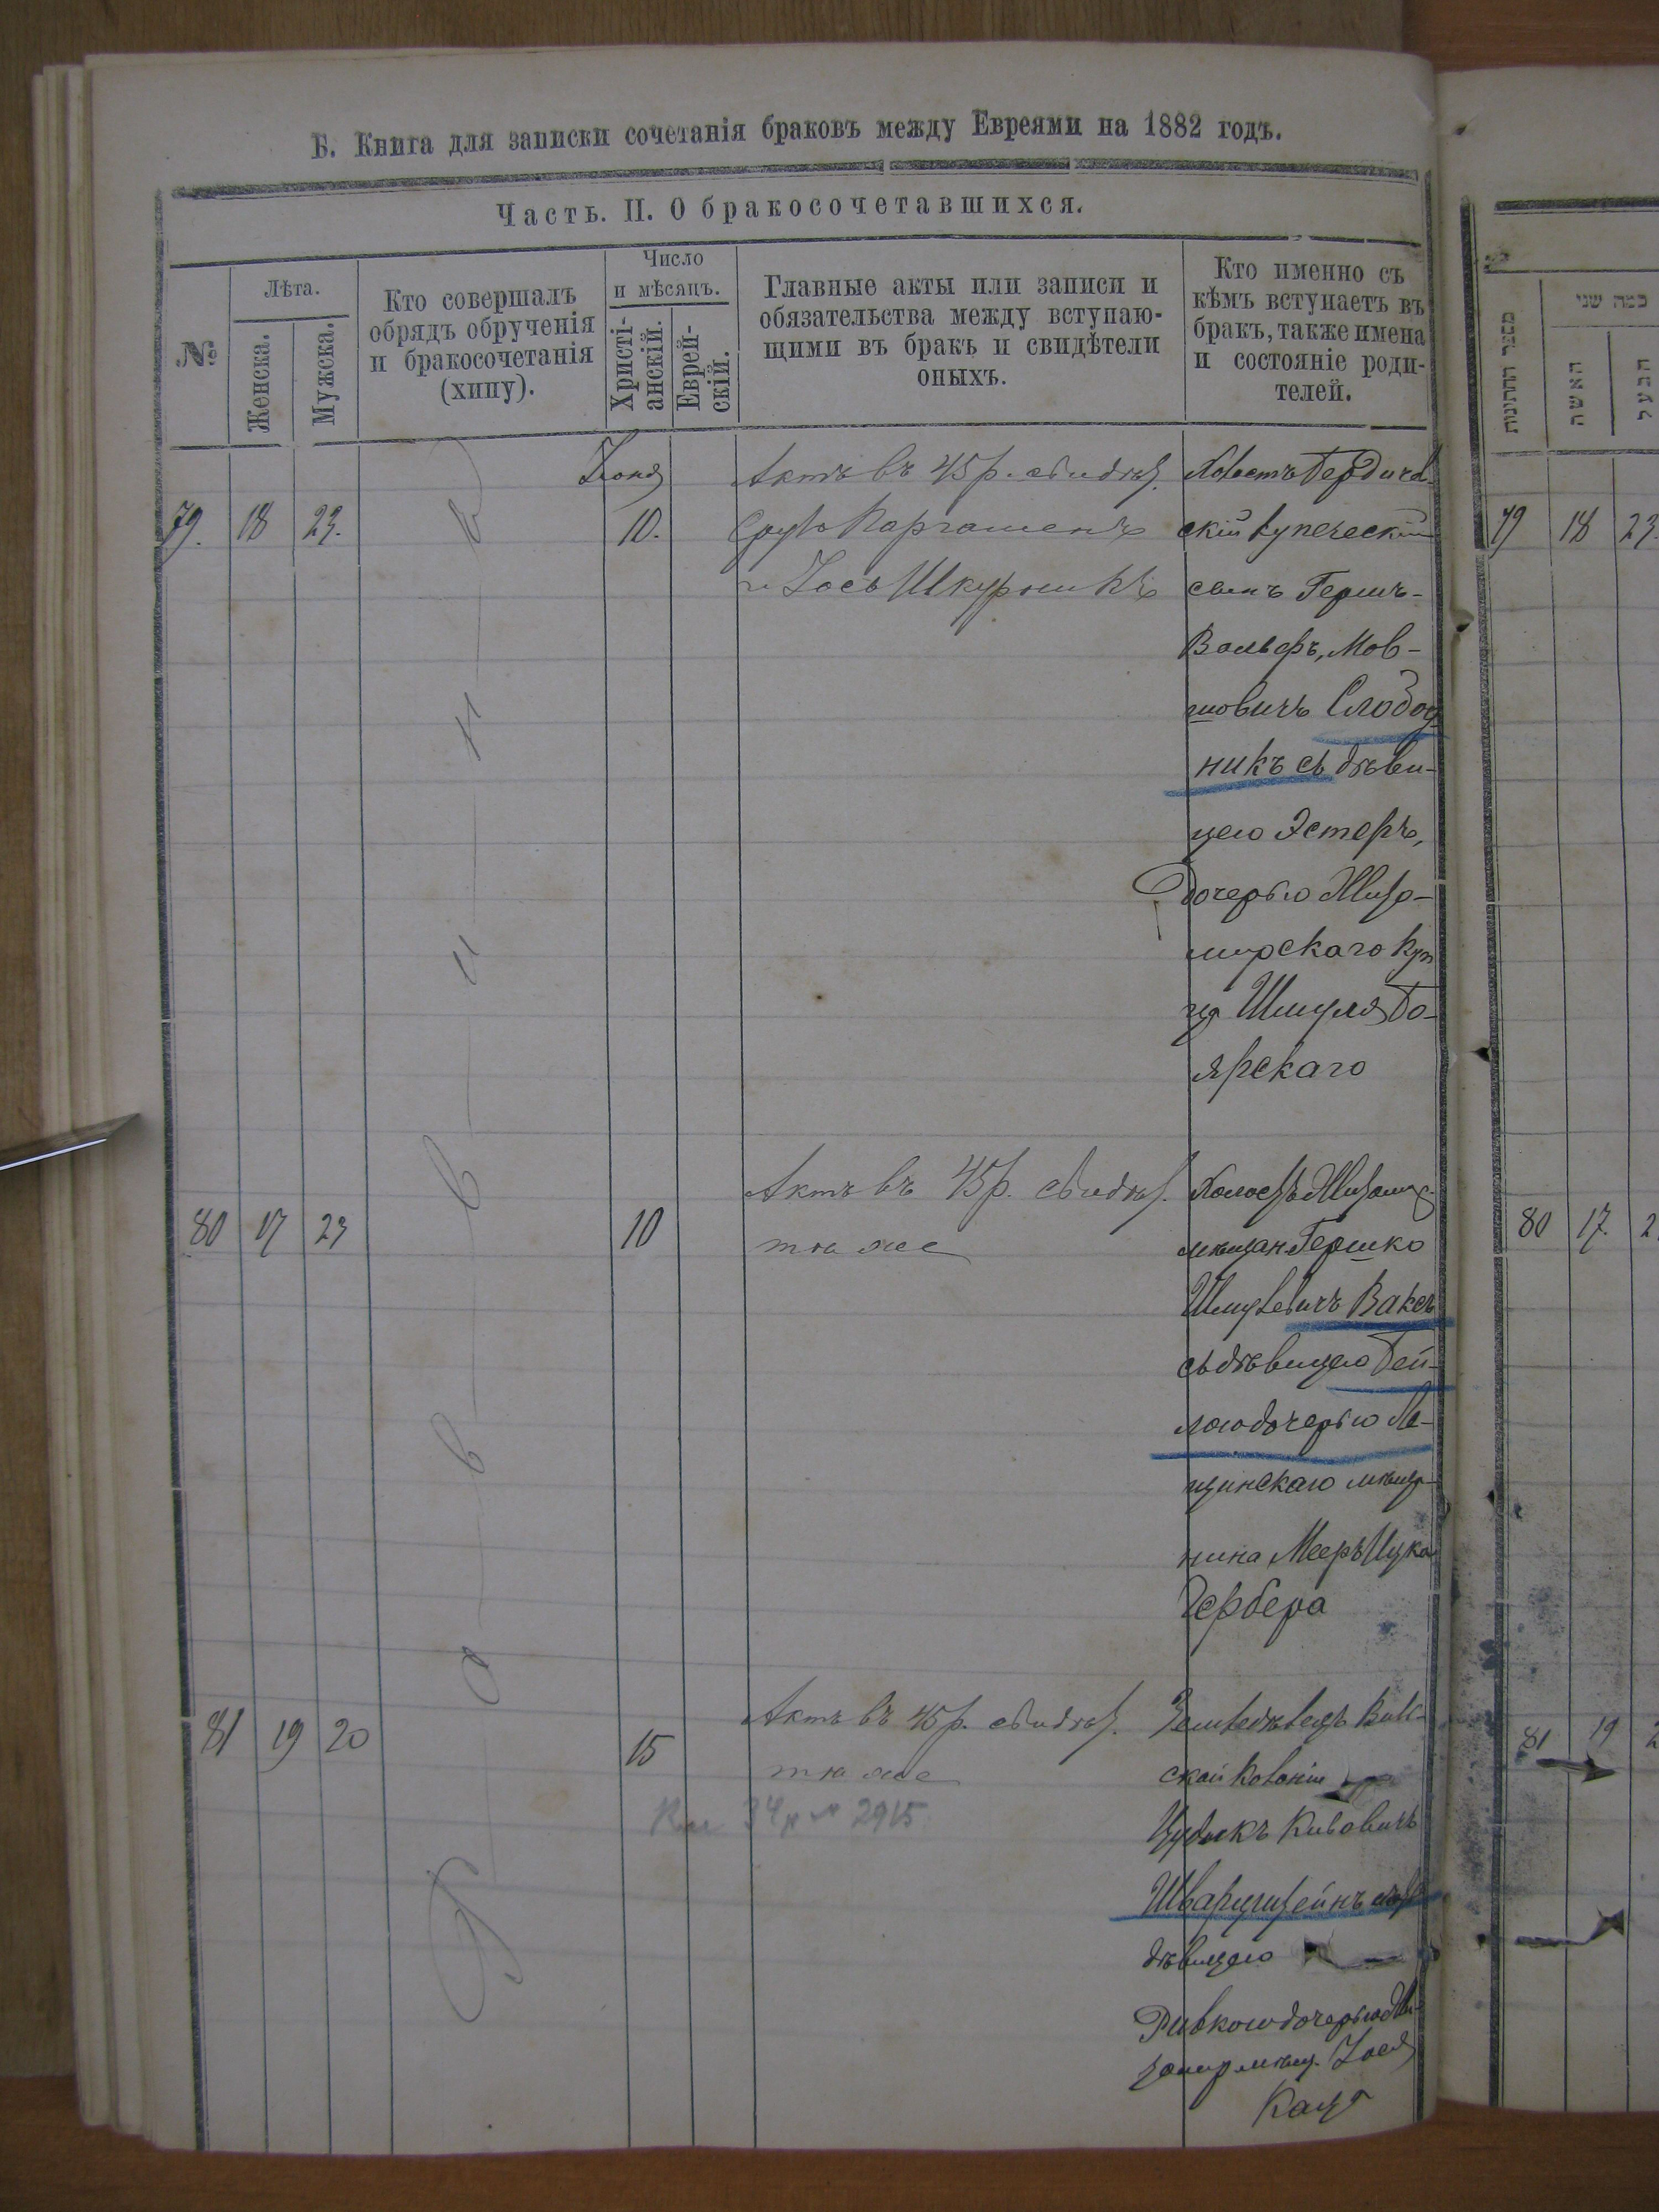 Б. Книга для записки сочетанія браковъ между Евреями на 1882 годъ.
Часть. II. О бракосочетавшихся.
№
Лѣта.
Женска.
Мужска.
Кто совершалъ
обрядъ обрученія
и бракосочетанія
(хипу).
Число
и мѣсяцъ.
Христі-
анскій.
Еврей-
скій.
Главные акты или записи и
обязательства между вступаю-
щими въ бракъ и свидѣтели
оныхъ.
Кто именно съ
кѣмъ вступаетъ въ
бракъ, также имена
и состояніе роди-
телей.
Іюня
79. 18 23. 10.
Актъ въ 45 р. свидѣт.
и Іось Шкурникъ
Холостъ Бердичев-
скій купеческій
сынъ Гершъ-
Вольфъ, Мов-
шовичъ Слобод
никъ съ дѣви-
цею Эстеръ,
дочерью Жито-
мирскаго куп
ца Шмуля Бо-
ярскаго
80 17 23 10
Актъ въ 45 р. свидѣт.
тѣ же
Холостъ Житомир.
мѣщан. Гершко
Шмулевичъ Ваксъ
съ дѣвицею Бей-
лою дочерью Ле-
щинскаго мѣща-
нина Мееръ Ицка
Гербера
81 19 20 15
Актъ въ 45 р. свидѣт.
тѣ же
34 2915
Земледѣлецъ
ской Колоніи
Цудикъ
Шварцштейнъ
дѣвицею
Ривкою дочерью Жи-
томир мѣщ. Іося
Каца
Р о в в и н ъ
מספר החתונות
כמה שני
האשה
הבעל
79 18 23
80 17. 2
81 19 2